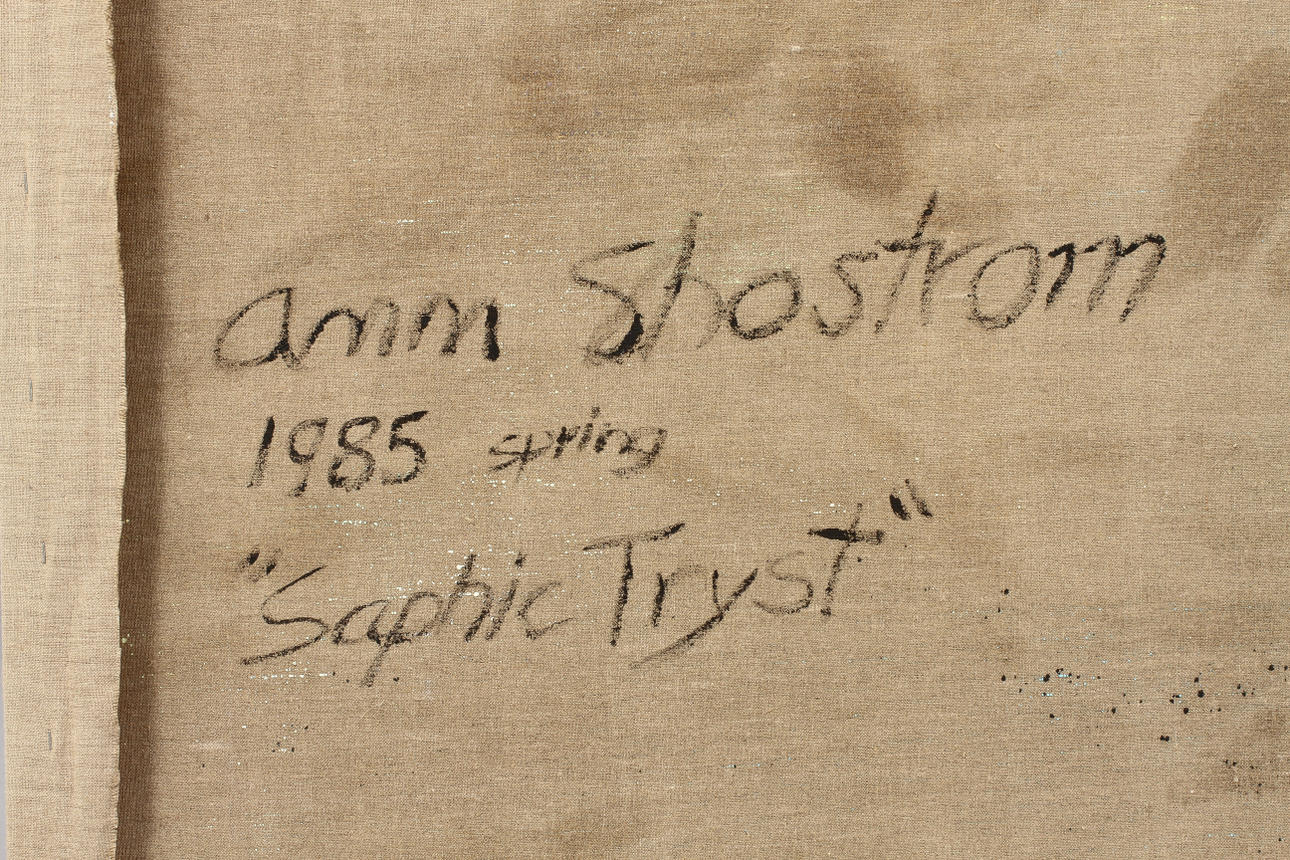 ann Shostrom
1985 spring
"Saphic Tryst"